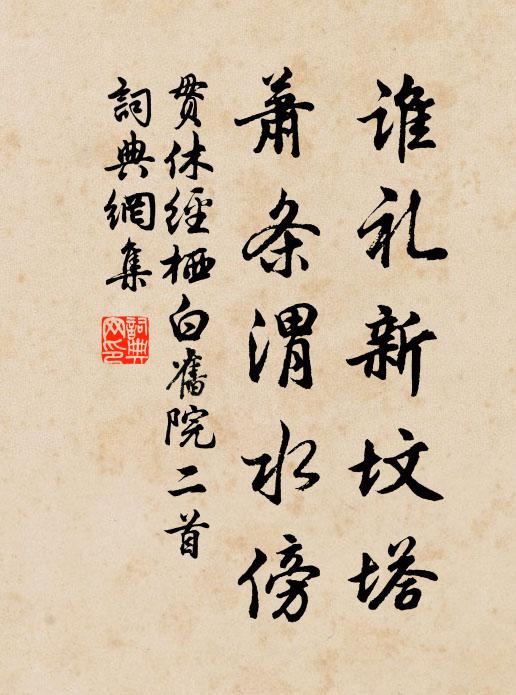 谁礼新坟塔
萧条渭水傍
贯休经栖白舊院二首
詞典網集
詞典网印